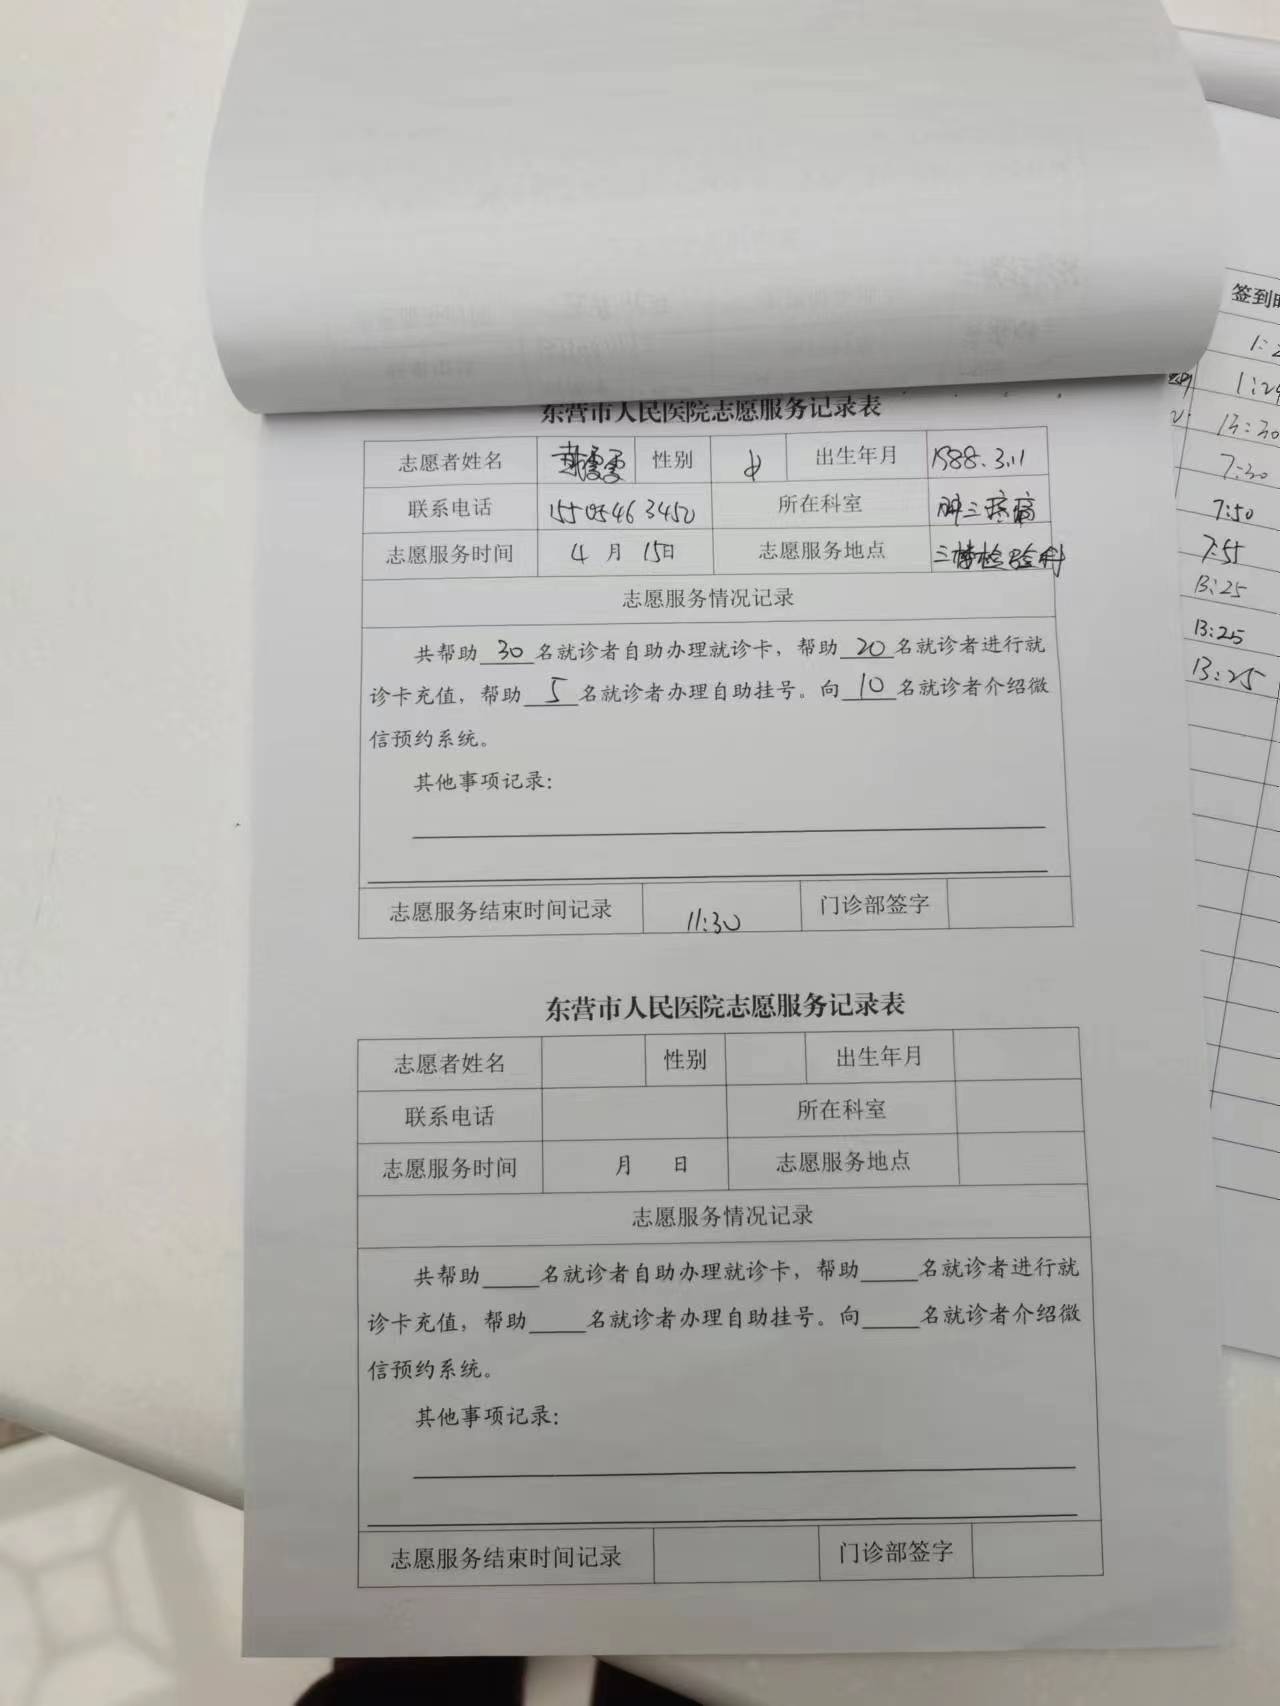 东营市人民医院志愿服务记录表
志愿者姓名 性别 女 出生年月 1988.3.11
联系电话 15505463452 所在科室 肿三疼痛
志愿服务时间 4月15日 志愿服务地点 三楼检验科
志愿服务情况记录
共帮助30名就诊者自助办理就诊卡，帮助20名就诊者进行就
诊卡充值，帮助5名就诊者办理自助挂号。向10名就诊者介绍微
信预约系统。
其他事项记录：
志愿服务结束时间记录 11:30 门诊部签字
东营市人民医院志愿服务记录表
志愿者姓名 性别 出生年月
联系电话 所在科室
志愿服务时间 月 日 志愿服务地点
志愿服务情况记录
共帮助____名就诊者自助办理就诊卡，帮助____名就诊者进行就
诊卡充值，帮助____名就诊者办理自助挂号。向____名就诊者介绍微
信预约系统。
其他事项记录：
志愿服务结束时间记录 门诊部签字
签到
13:30
7:30
7:50
7:55
13:25
13:25
13:25